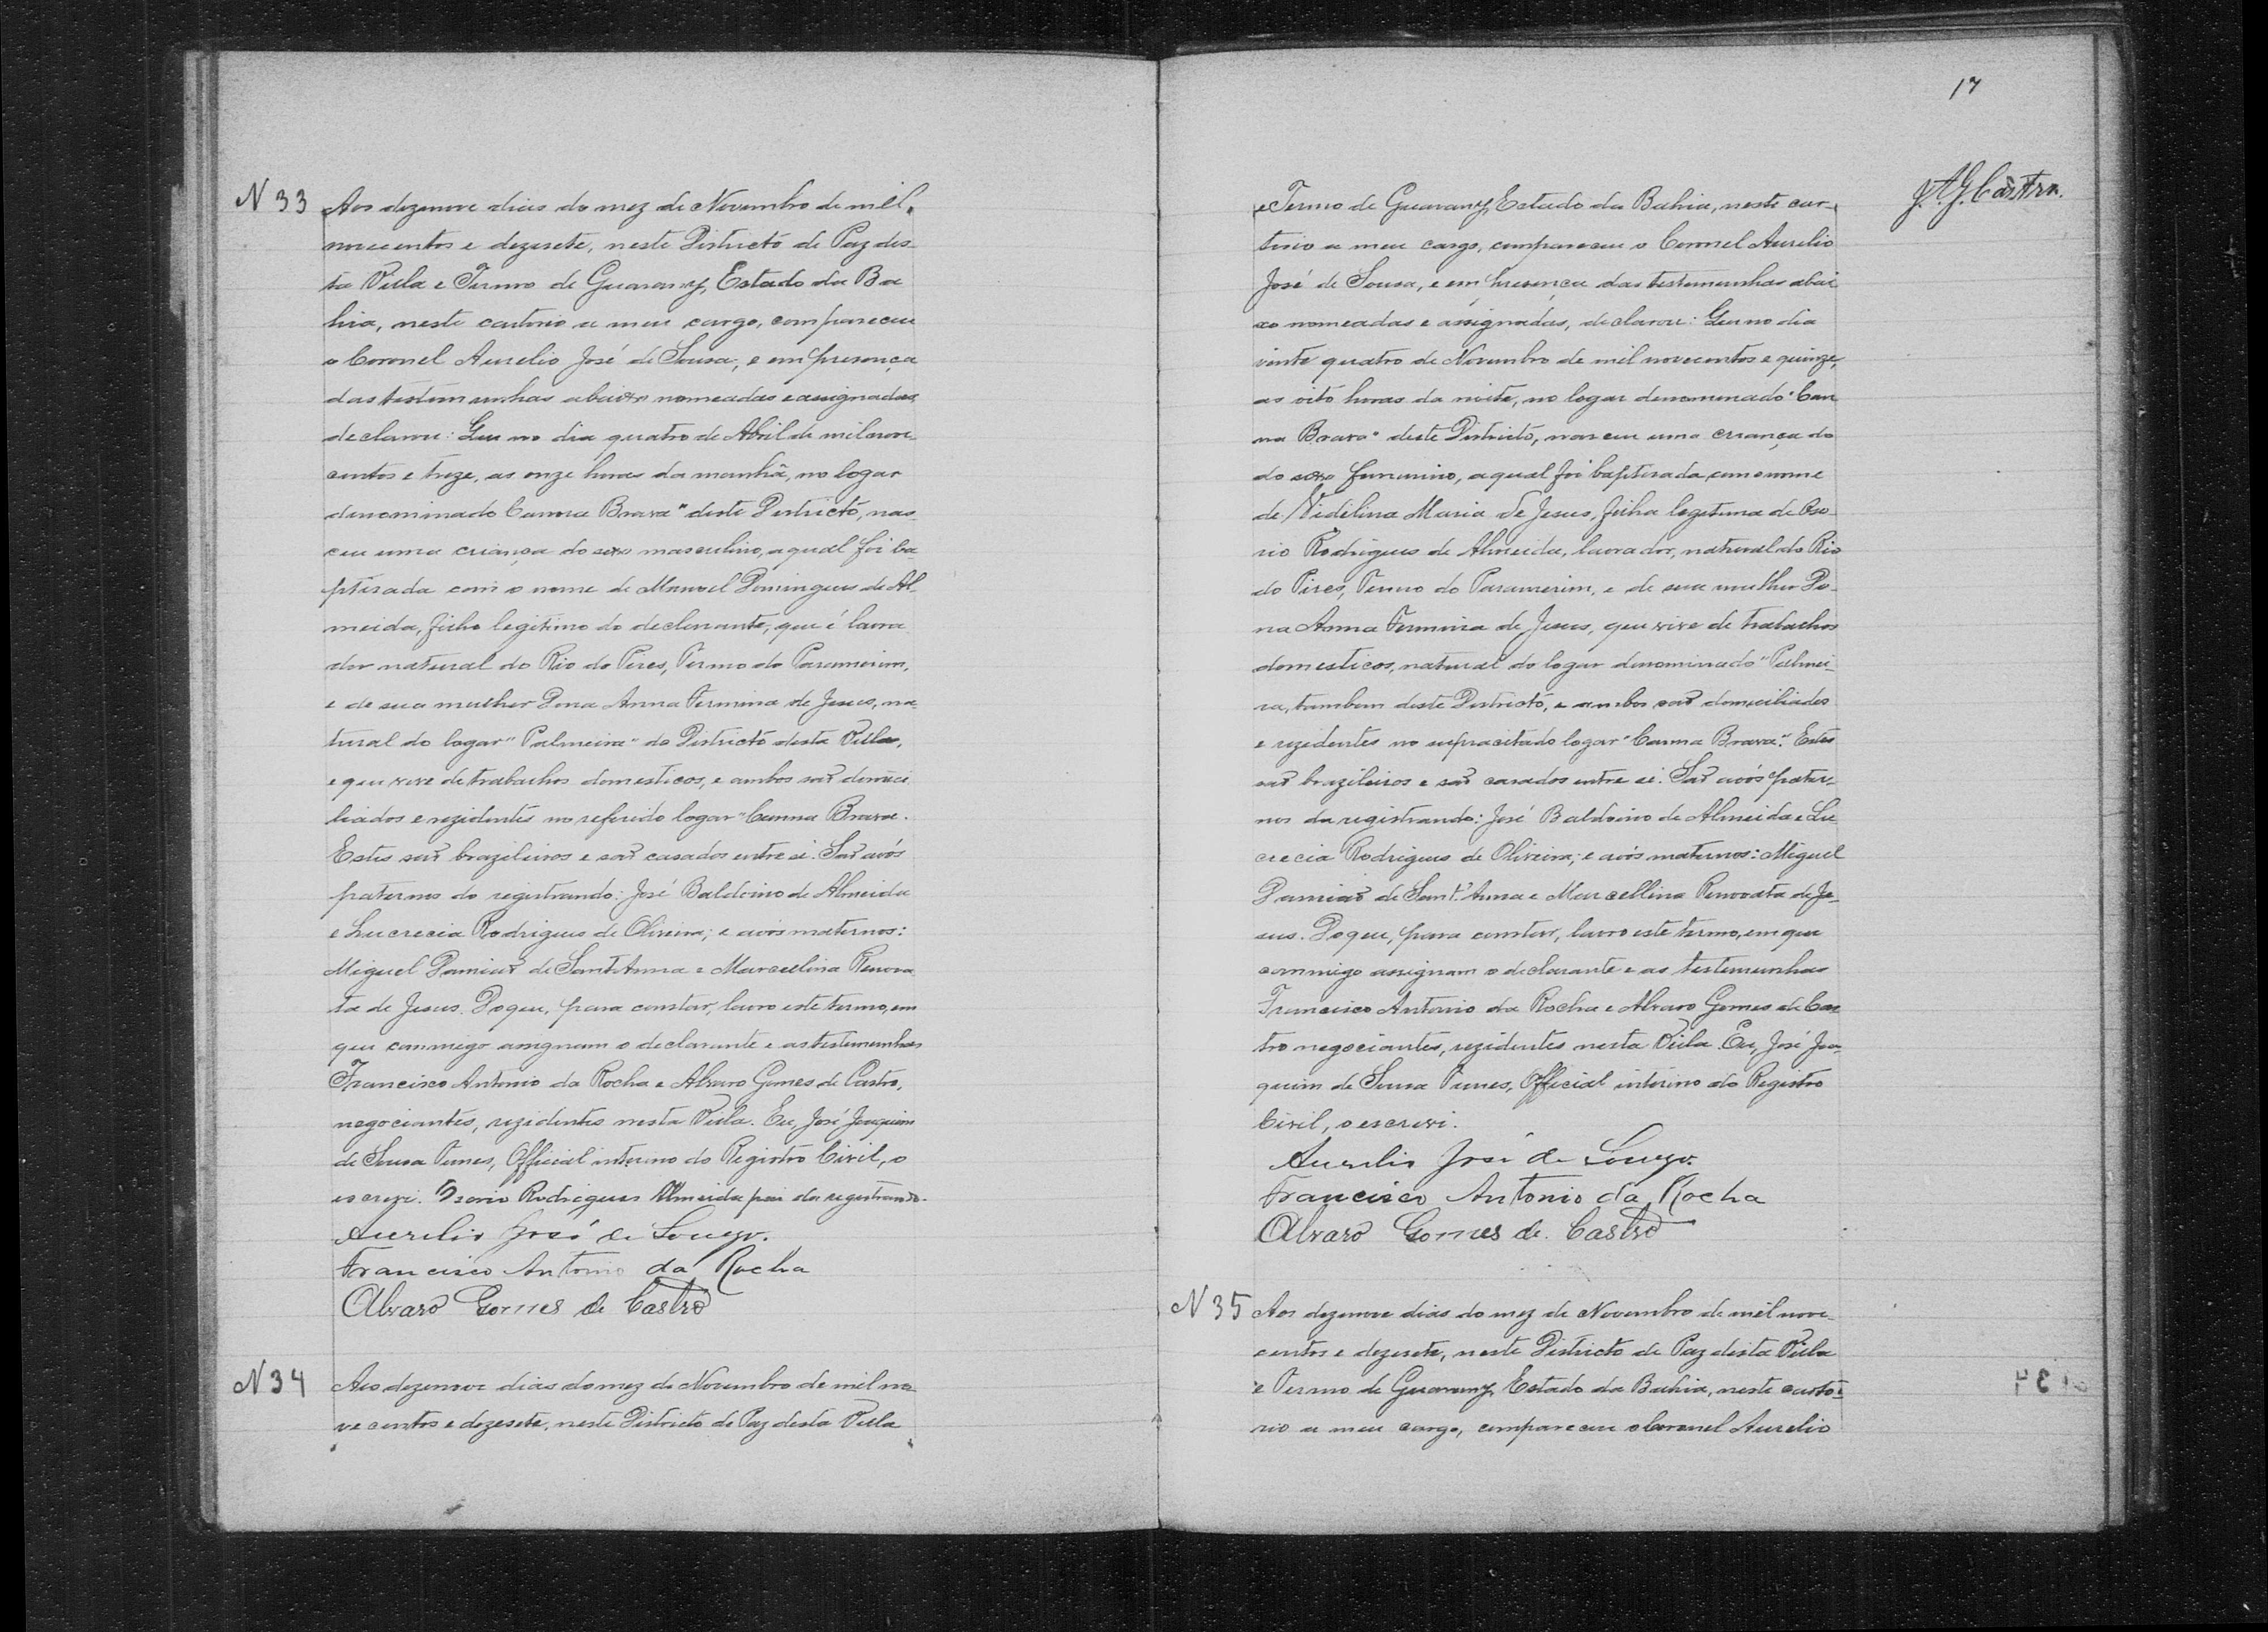 N 33 Aos dezenove dias do mez de Novembro de mil
novecentos e dezesete, neste Districto de Paz des-
ta Villa e Termo de Guarany, Estado da Ba
hia, neste cartorio a meu cargo, compareceu
o Coronel Aurelio José de Sousa, e em presença
das testemunhas abaixo nomeadas e assignadas,
declarou: Que no dia quatro de Abril de mil nove-
centos e treze, as onze horas da manhã, no logar
denominado Canna Brava" deste Districto, nas-
ceu uma criança do sexo masculino, a qual foi ba
ptisada com o nome de Manoel Domingues de Al-
meida, filho legitimo do declarante, que é lavra
dor natural do Rio do Pires, Termo do Paramerim,
e de sua mulher Dona Anna Firmina de Jesus, na-
tural do logar "Palmeira" do Districto desta Villa,
e que vive de trabalhos domesticos, e ambos são domici
liados e rezidentes no referido logar "Canna Brava.
Estes são brazileiros e são casados entre si. São avós
paternos do registrando: José Baldoino de Almeida
e Lucrecia Rodrigues de Oliveira; e avós maternos:
Miguel Damião de Sant'Anna e Marcellina Renova
ta de Jesus. Do que, para constar, lavro este termo, em
que commigo assignam o declarante e as testemunhas
Francisco Antonio da Rocha e Alvaro Gomes de Castro,
negociantes, rezidentes nesta Villa. Eu, José Joaquim
de Sousa Nunes, Official interino do Registro Civil, o
escrevi. Ozorio Rodrigues Almeida pai do registrando.
Aurelio José de Souza.
Francisco Antonio da Rocha
Alvaro Gomes de Castro
N 34 Aos dezenove dias do mez de Novembro de mil no-
vecentos e dezesete, neste Districto de Paz desta Villa
17
J. A. G. Castro.
e Termo de Guarany, Estado da Bahia, neste car-
torio a meu cargo, compareceu o Coronel Aurelio
José de Sousa, e em presença das testemunhas abai
xo nomeadas e assignadas, declarou: Que no dia
vinte quatro de Novembro de mil novecentos e quinze,
as oito horas da noite, no logar denominado "Can
na Brava" deste Districto, nasceu uma criança do
do sexo femenino, a qual foi baptisada com o nome
de Videlina Maria de Jesus, filha legitima de Oso-
rio Rodrigues de Almeida, lavrador, natural do Rio
do Pires, Termo do Paramerim, e de sua mulher Do-
na Anna Firmina de Jesus, que vive de trabalhos
domesticos, natural do logar denominado "Palmei-
ra, tambem deste Districto, e ambos são domiciliados
e rezidentes no supracitado logar "Canna Brava". Estes
são brazileiros e são casados entre si. São avós pater-
nos da registrando: José Baldoino de Almeida e Lu
crecia Rodrigues de Oliveira; e avós maternos: Miguel
Damião de Sant'Anna e Marcellina Renovata de Je-
sus. Do que, para constar, lavro este termo, em que
commigo assignam o declarante e as testemunhas
Francisco Antonio da Rocha e Alvaro Gomes de Cas
tro negociantes, rezidentes nesta Villa. Eu, José Joa-
quim de Sousa Nunes, Official interino do Registro
Civil, o escrevi.
Aurelio José de Souza.
Francisco Antonio da Rocha
Alvaro Gomes de Castro
N 35 Aos dezenove dias do mez de Novembro de mil nove-
centos e dezesete, neste Districto de Paz desta Villa
e Termo de Guarany, Estado da Bahia, neste carto-
rio a meu cargo, compareceu o Coronel Aurelio